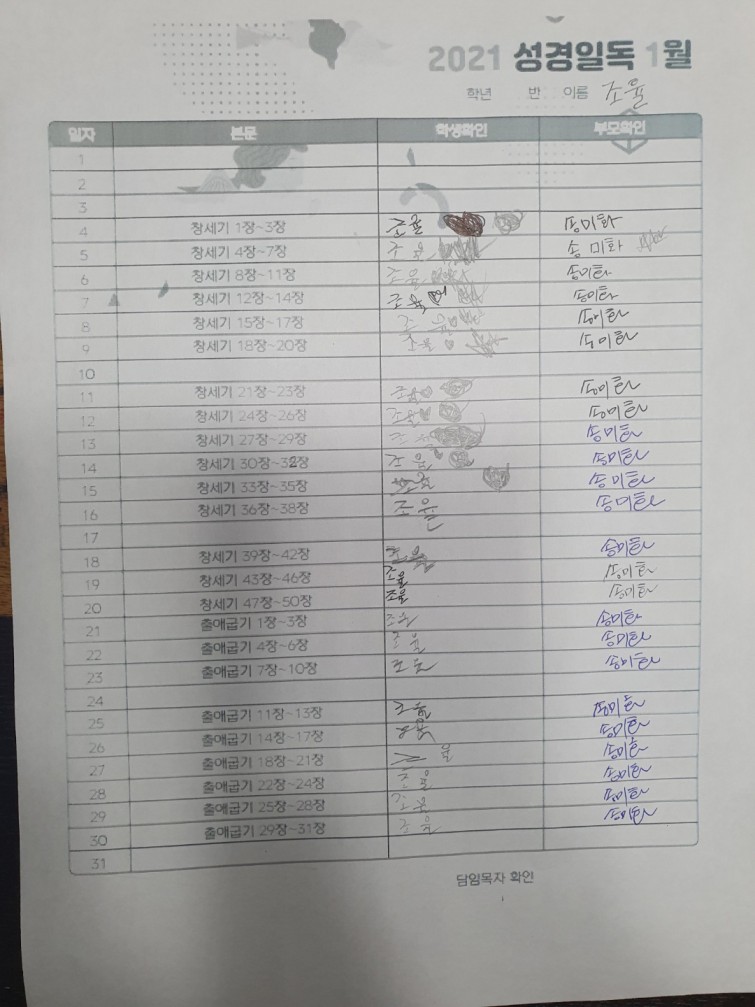 2021 성경일독 1월
학년 반 이름 조율
일자 본문 학생확인 부모확인
1
2
3
4 창세기 1장~3장 조율 송미화
5 창세기 4장~7장 조율 송미화
6 창세기 8장~11장 조율 송미화
7 창세기 12장~14장 조율 송미화
8 창세기 15장~17장 조율 송미화
9 창세기 18장~20장 조율 송미화
10
11 창세기 21장~23장 조율 송미화
12 창세기 24장~26장 조율 송미화
13 창세기 27장~29장 조율 송미화
14 창세기 30장~32장 조율 송미화
15 창세기 33장~35장 조율 송미화
16 창세기 36장~38장 조율 송미화
17
18 창세기 39장~42장 조율 송미화
19 창세기 43장~46장 조율 송미화
20 창세기 47장~50장 조율 송미화
21 출애굽기 1장~3장 조율 송미화
22 출애굽기 4장~6장 조율 송미화
23 출애굽기 7장~10장 조율 송미화
24
25 출애굽기 11장~13장 조율 송미화
26 출애굽기 14장~17장 조율 송미화
27 출애굽기 18장~21장 조율 송미화
28 출애굽기 22장~24장 조율 송미화
29 출애굽기 25장~28장 조율 송미화
30 출애굽기 29장~31장 조율 송미화
31
담임목자 확인